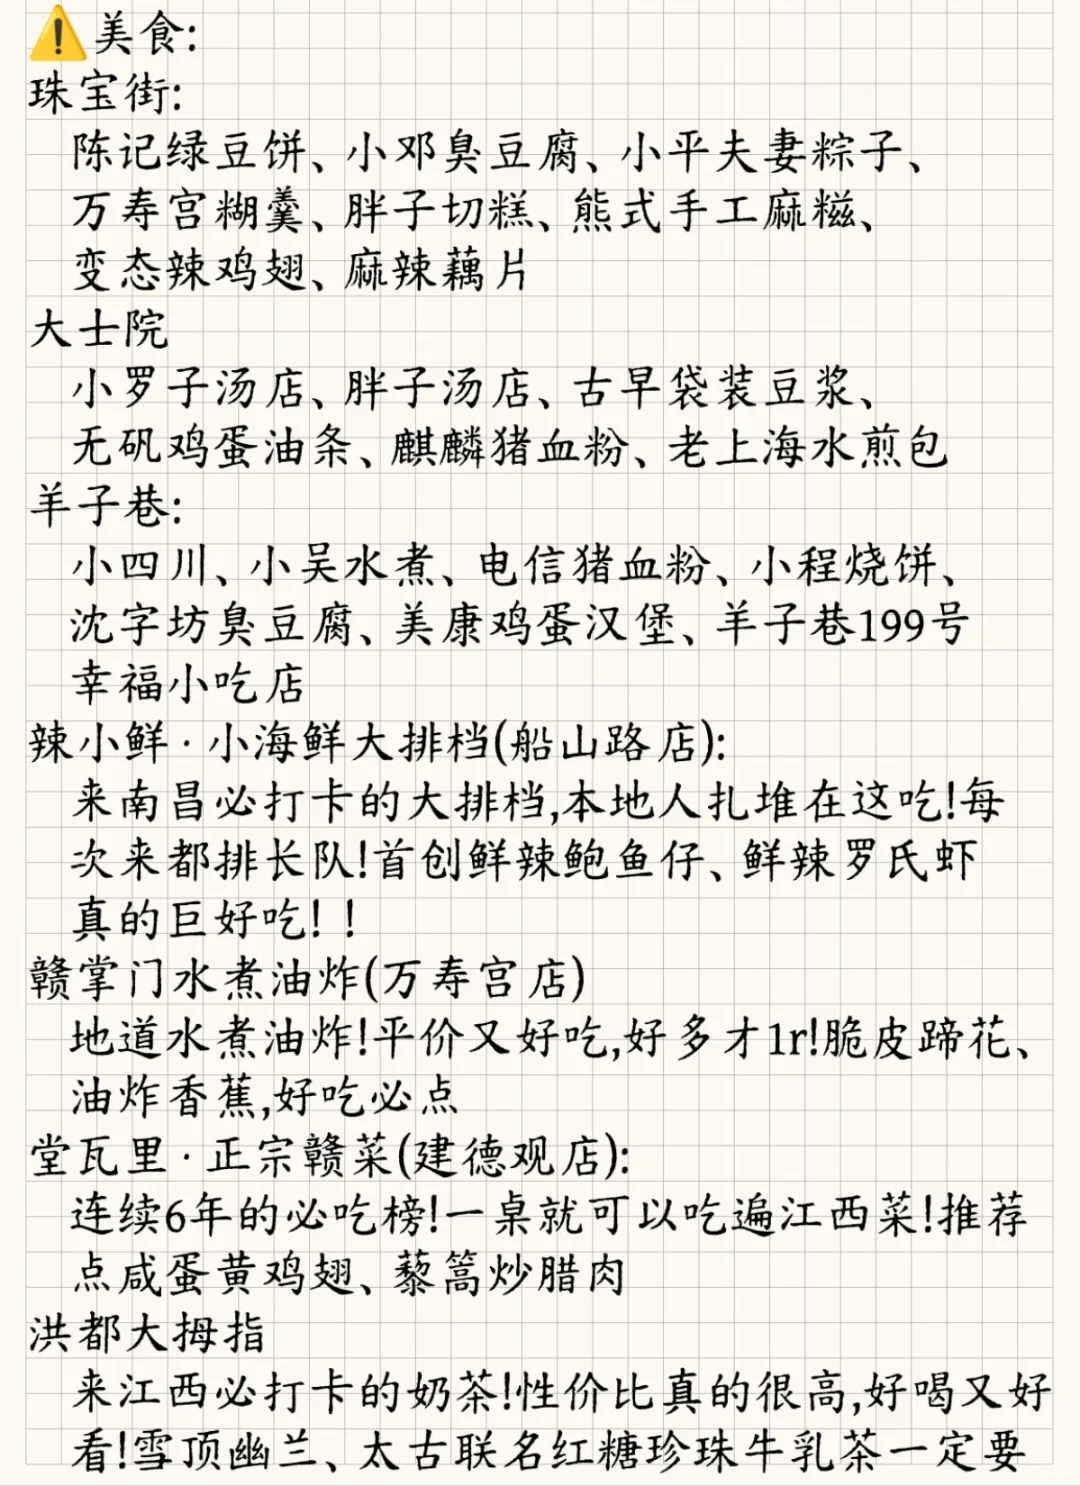 ⚠️美食:
珠宝街:
陈记绿豆饼、小邓臭豆腐、小平夫妻粽子、
万寿宫糊羹、胖子切糕、熊式手工麻糍、
变态辣鸡翅、麻辣藕片
大士院
小罗子汤店、胖子汤店、古早袋装豆浆、
无矾鸡蛋油条、麒麟猪血粉、老上海水煎包
羊子巷:
小四川、小吴水煮、电信猪血粉、小程烧饼、
沈字坊臭豆腐、美康鸡蛋汉堡、羊子巷199号
幸福小吃店
辣小鲜·小海鲜大排档(船山路店):
来南昌必打卡的大排档,本地人扎堆在这吃!每
次来都排长队!首创鲜辣鲍鱼仔、鲜辣罗氏虾
真的巨好吃!!
赣掌门水煮油炸(万寿宫店)
地道水煮油炸!平价又好吃,好多才1r!脆皮蹄花、
油炸香蕉,好吃必点
堂瓦里·正宗赣菜(建德观店):
连续6年的必吃榜!一桌就可以吃遍江西菜!推荐
点咸蛋黄鸡翅、藜蒿炒腊肉
洪都大拇指
来江西必打卡的奶茶!性价比真的很高,好喝又好
看!雪顶幽兰、太古联名红糖珍珠牛乳茶一定要